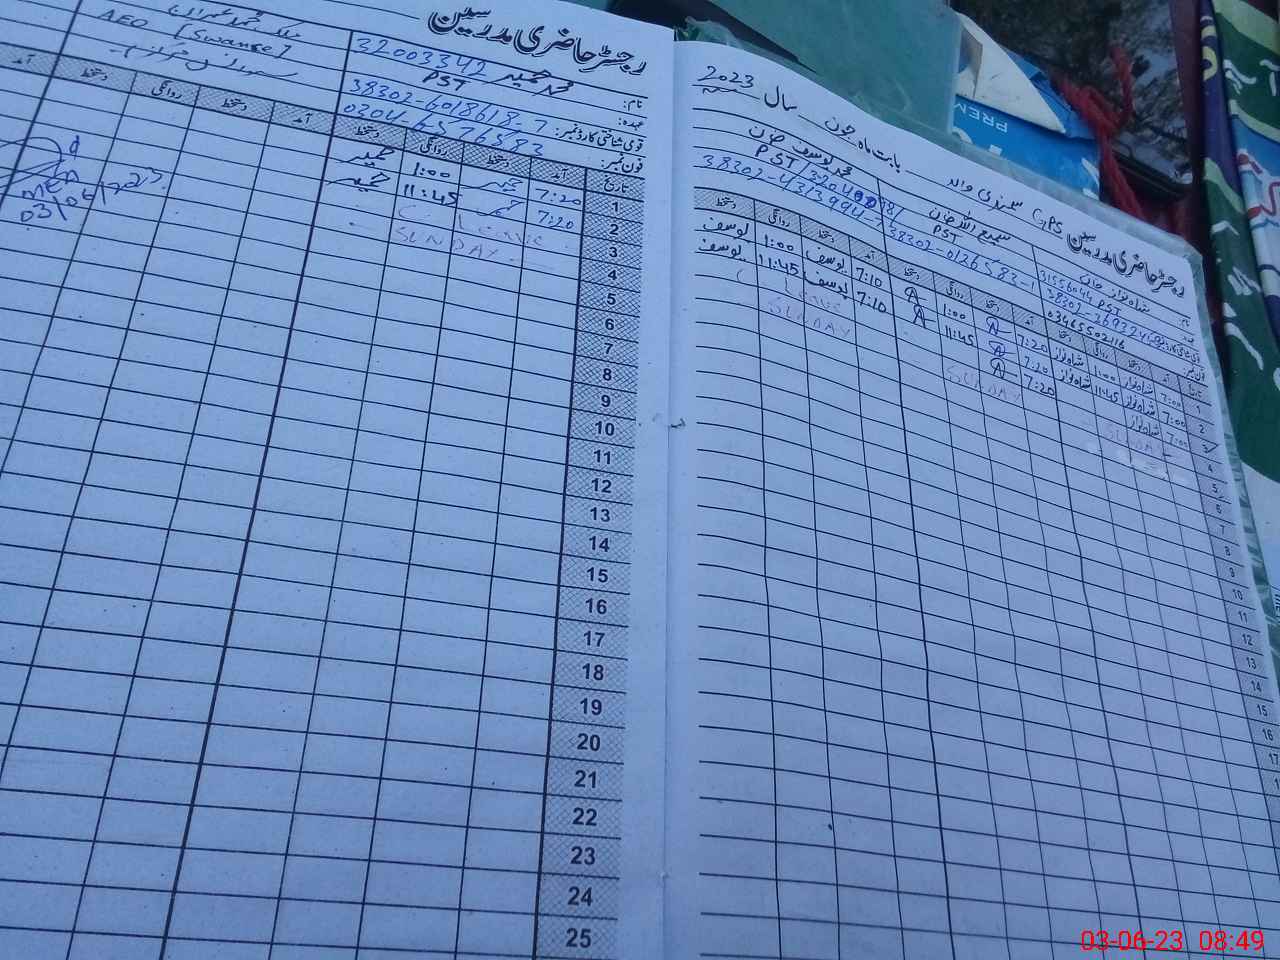 رجسٹر حاضری مدرسین GPS
بابت ماہ جون سال 2023
نام
شاہ نواز خان
31556044 PST
03465502116
سمیع اللہ خان
PST
38302-0126583-1
محمد یوسف خان
PST
تاریخ آمد دستخط روانگی دستخط آمد دستخط روانگی دستخط آمد دستخط روانگی دستخط
1 7:00 شاہ نواز 1:00 شاہ نواز 7:20 1:00 7:10 یوسف 1:00 یوسف
2 7:00 شاہ نواز 11:45 شاہ نواز 7:20 11:45 7:10 یوسف 11:45 یوسف
3 7:00 شاہ نواز 7:20 Leave
4 SUNDAY SUNDAY SUNDAY
5
6
7
8
9
10
11
12
13
14
15
16
17
رجسٹر حاضری مدرسین
نام: محمد حمید 32003342
عہدہ: PST
قومی شناختی کارڈ نمبر: 38302-6018618-7
فون نمبر: 0304-6576583
AEO
[Swanse]
تاریخ آمد دستخط روانگی دستخط آمد دستخط روانگی دستخط آمد
1 7:20 حمید 1:00 حمید
2 7:20 حمید 11:45 حمید
3 C. Leave
4 SUNDAY
5
6
7
8
9
10
11
12
13
14
15
16
17
18
19
20
21
22
23
24
25
MEA
03/06/
PREM
03-06-23 08:49